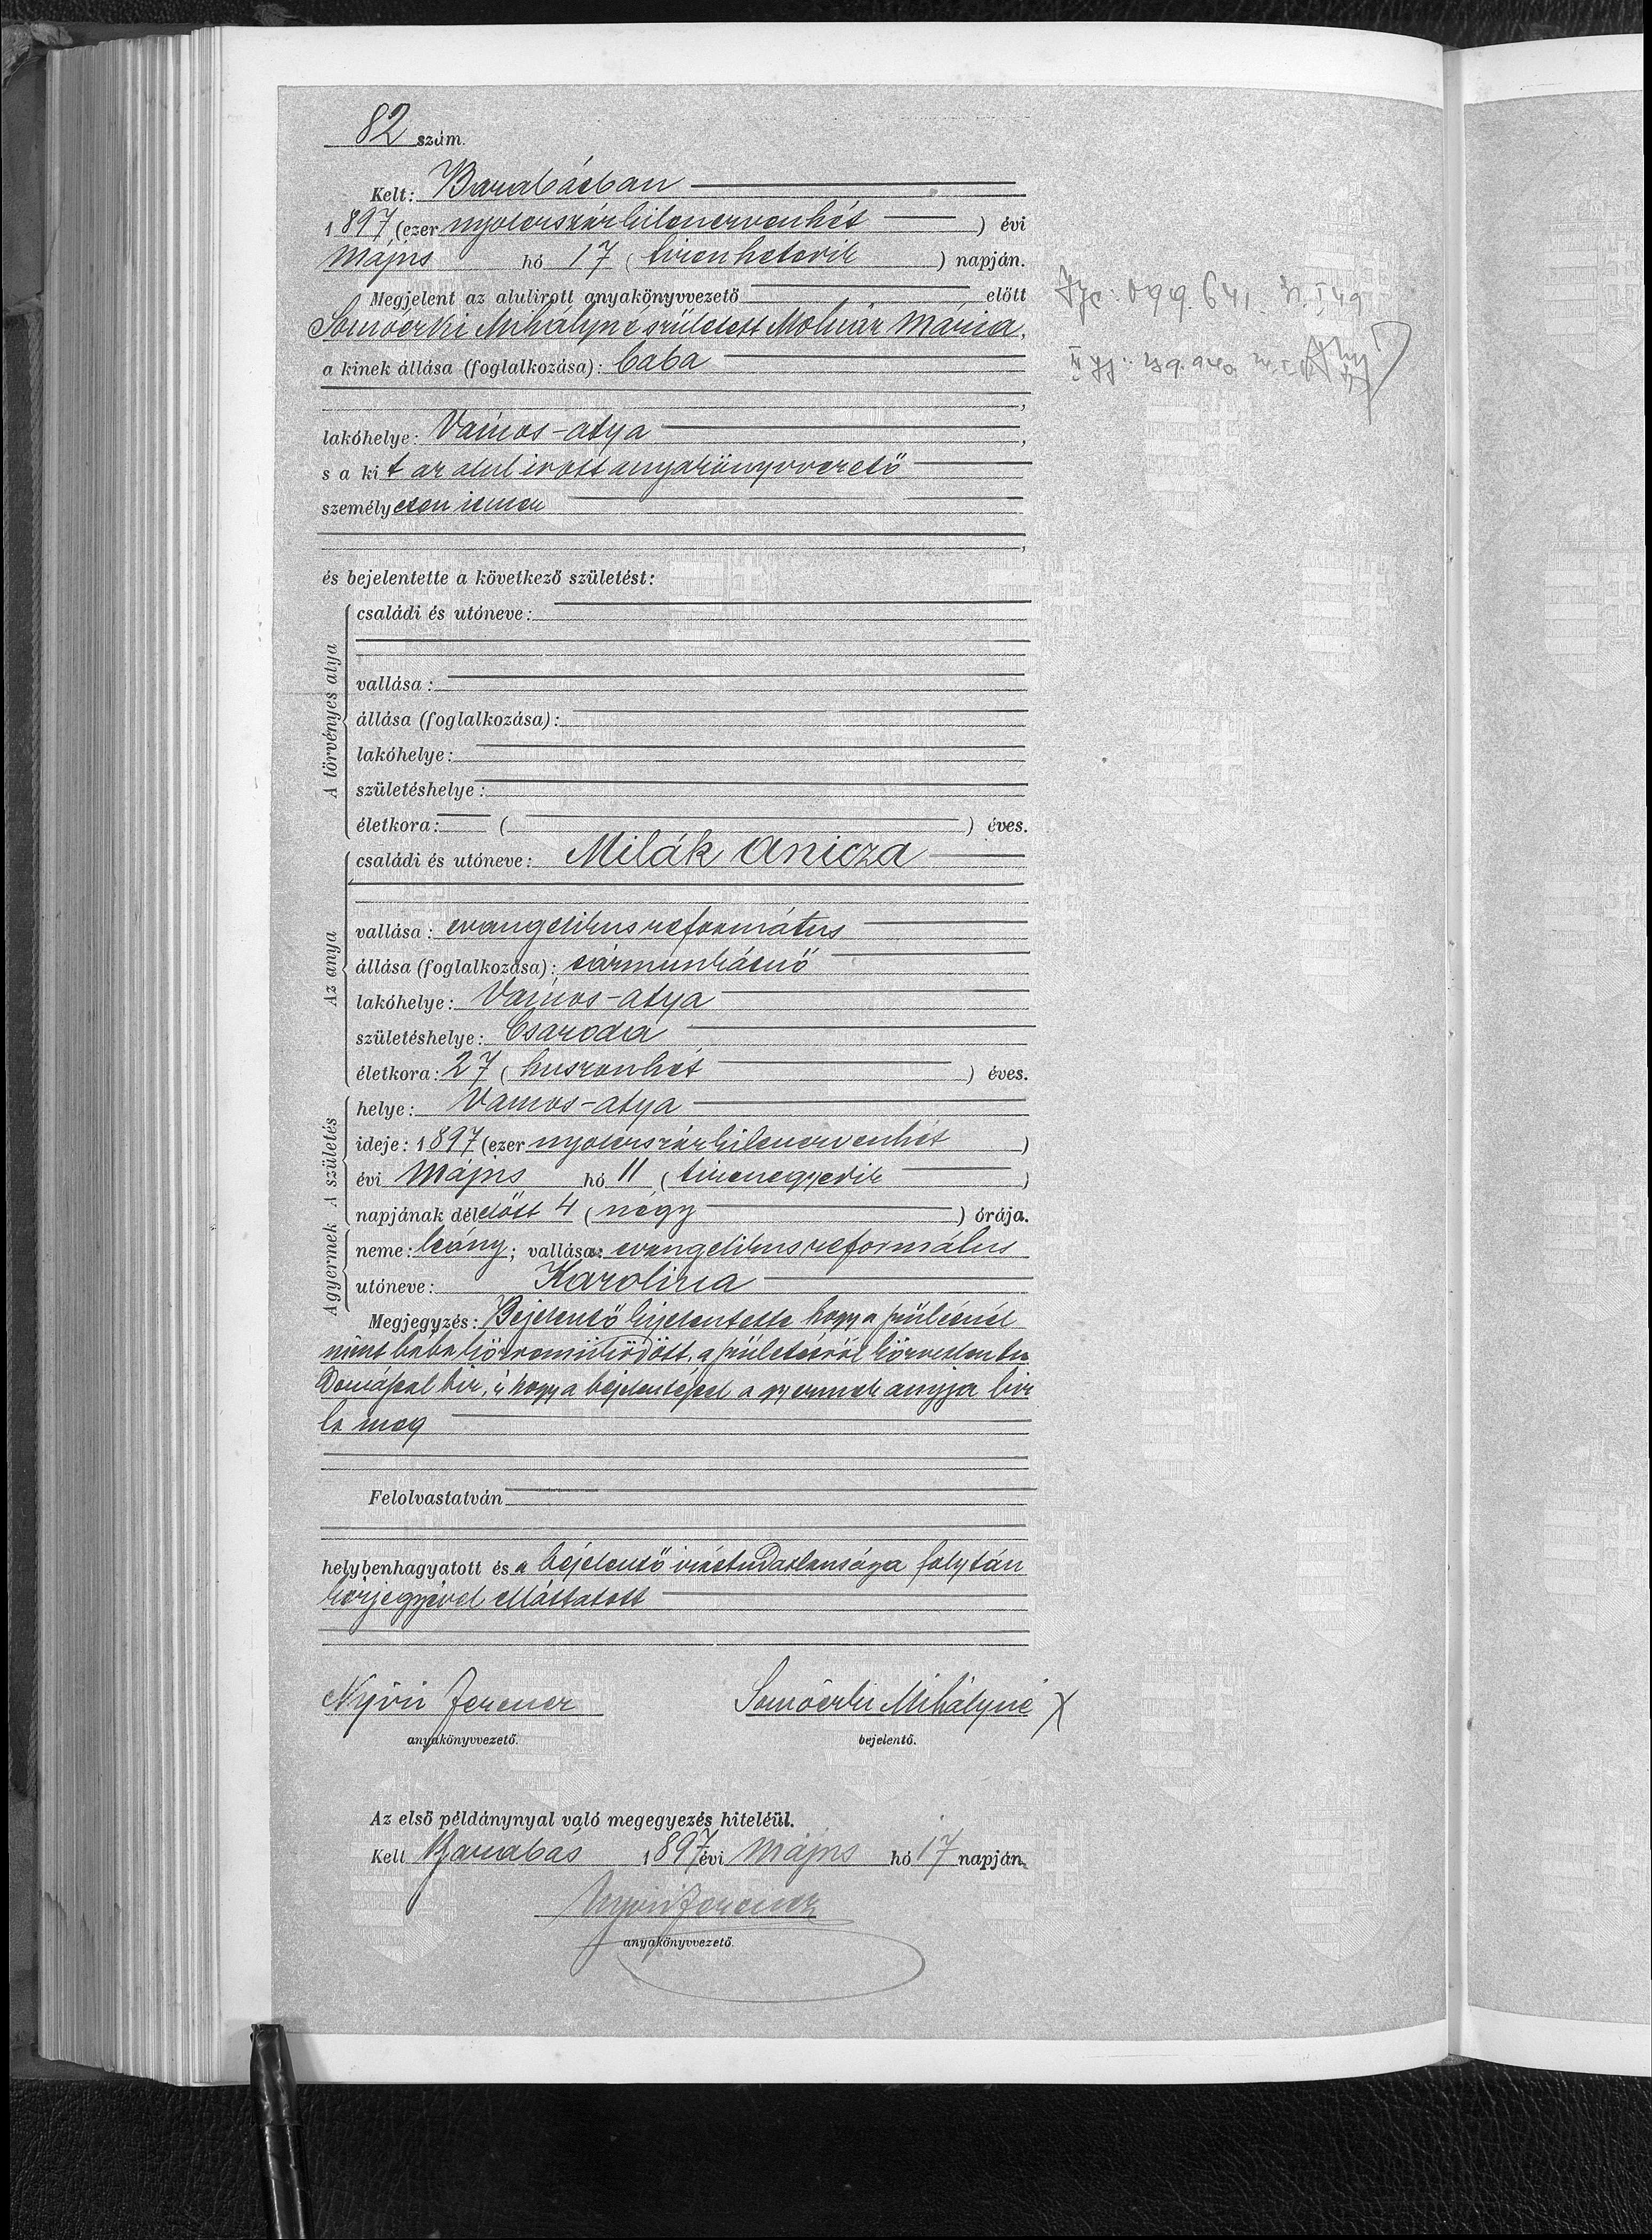 82 szám.
Kelt: Barabásban
1897 (ezer nyolcszázkilencvenhét) évi
Május hó 17 (tizenhetedik) napján.
Megjelent az alulirott anyakönyvvezető előtt
Mihályné született Molnár Mária,
a kinek állása (foglalkozása): bába
lakóhelye: Vámos-atya,
s a kit az alulirott anyakönyvvezető
személyesen ismer
és bejelentette a következő születést:
A törvényes atya
családi és utóneve:
vallása:
állása (foglalkozása):
lakóhelye:
születéshelye:
életkora: ( ) éves.
Az anya
családi és utóneve: Milák Anicza
vallása: evangelikus református
állása (foglalkozása):
lakóhelye: Vámos-atya
születéshelye: Csaroda
életkora: 27 (huszonhét) éves.
A születés
helye: Vámos-atya
ideje: 1897 (ezer nyolcszázkilencvenhét)
évi Május hó 11 (tizenegyedik)
napjának délelőtt 4 (négy) órája.
A gyermek
neme: leány; vallása: evangelikus református
utóneve: Karolina
Megjegyzés: Bejelentő kijelentette hogy a szülésnél
mint bába közreműködött, a születésről közvetlen tu
domással bir, s hogy a bejelentéssel a gyermek anyja biz
ta meg
Felolvastatván
helybenhagyatott és a bejelentő irástudatlansága folytán
kézjegyével elláttatott
Nyiri Ferencz Mihályné X
anyakönyvvezető. bejelentő.
Az első példánynyal való megegyezés hiteléül.
Kelt Barabás 1897 évi Május hó 17 napján.
Nyiri Ferencz
anyakönyvvezető.